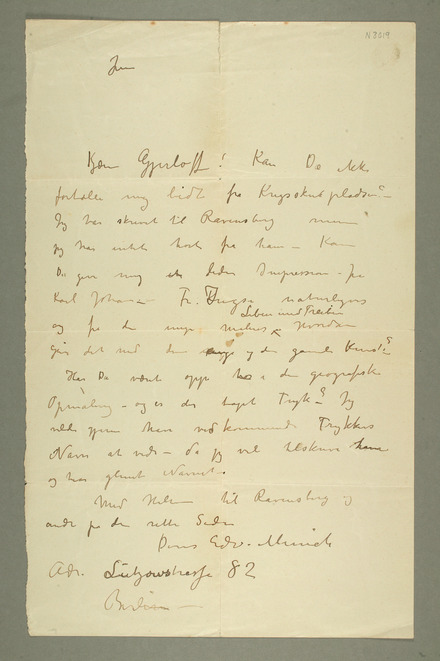 N 3019
Jun
Kjære Gjerløff! Kan De ikke
fortælle mig lidt fra Krigsskuepladsen?–
Jeg har skrevet til Ravensberg men
jeg har intet hørt fra ham – Kan
De give mig et lidet Impression fra
Karl Johan – Fr. naturligvis
Leben und Treiben
og fra de unge maleres – Hvordan
går det med den unge og den gamle Kunst?
Har De været oppe i den geografiske
Opmåling – og er der taget Tryk? Jeg
vilde gjerne have vedkommende Trykkers
Navn at vide – da jeg vil tilskrive ham
og har glemt Navnet.
Med Hilsen til Ravensberg og
andre på den rette Side
Deres Edv. Munch
Adr. Lützowstrasse 82
Berlin –